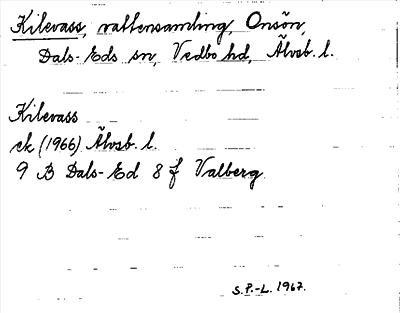 Kilevass, vattensamling, Onsön,
Dals-Eds sn, Vedbo hd, Älvsb. l.
Kilevass
ek (1966) Älvsb. l.
9 B Dals-Ed 8 f Valberg
S.P.-L. 1967.